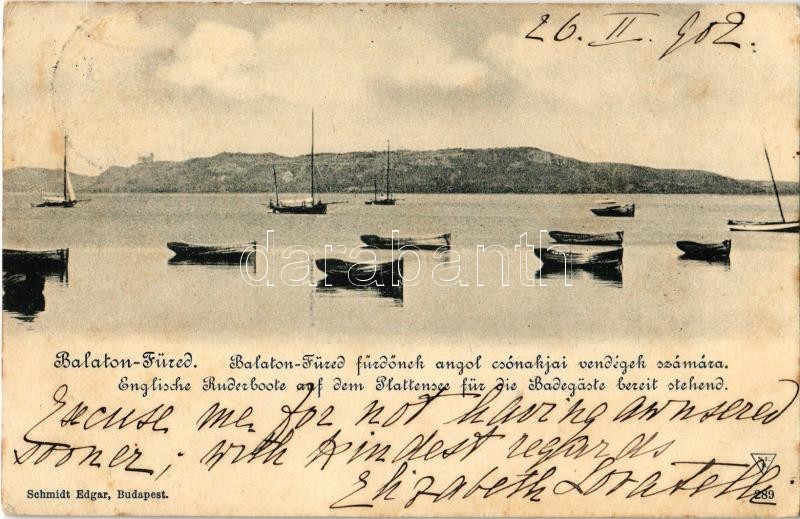 26. II. 902.
Balaton-Füred. Balaton-Füred fürdőnek angol csónakjai vendégek számára.
Englische Ruderboote auf dem Plattensee für die Badegäste bereit stehend.
Excuse me, for not having awnsered
sooner; with kindest regards
Elizabeth
Schmidt Edgar, Budapest.
289
darabanth